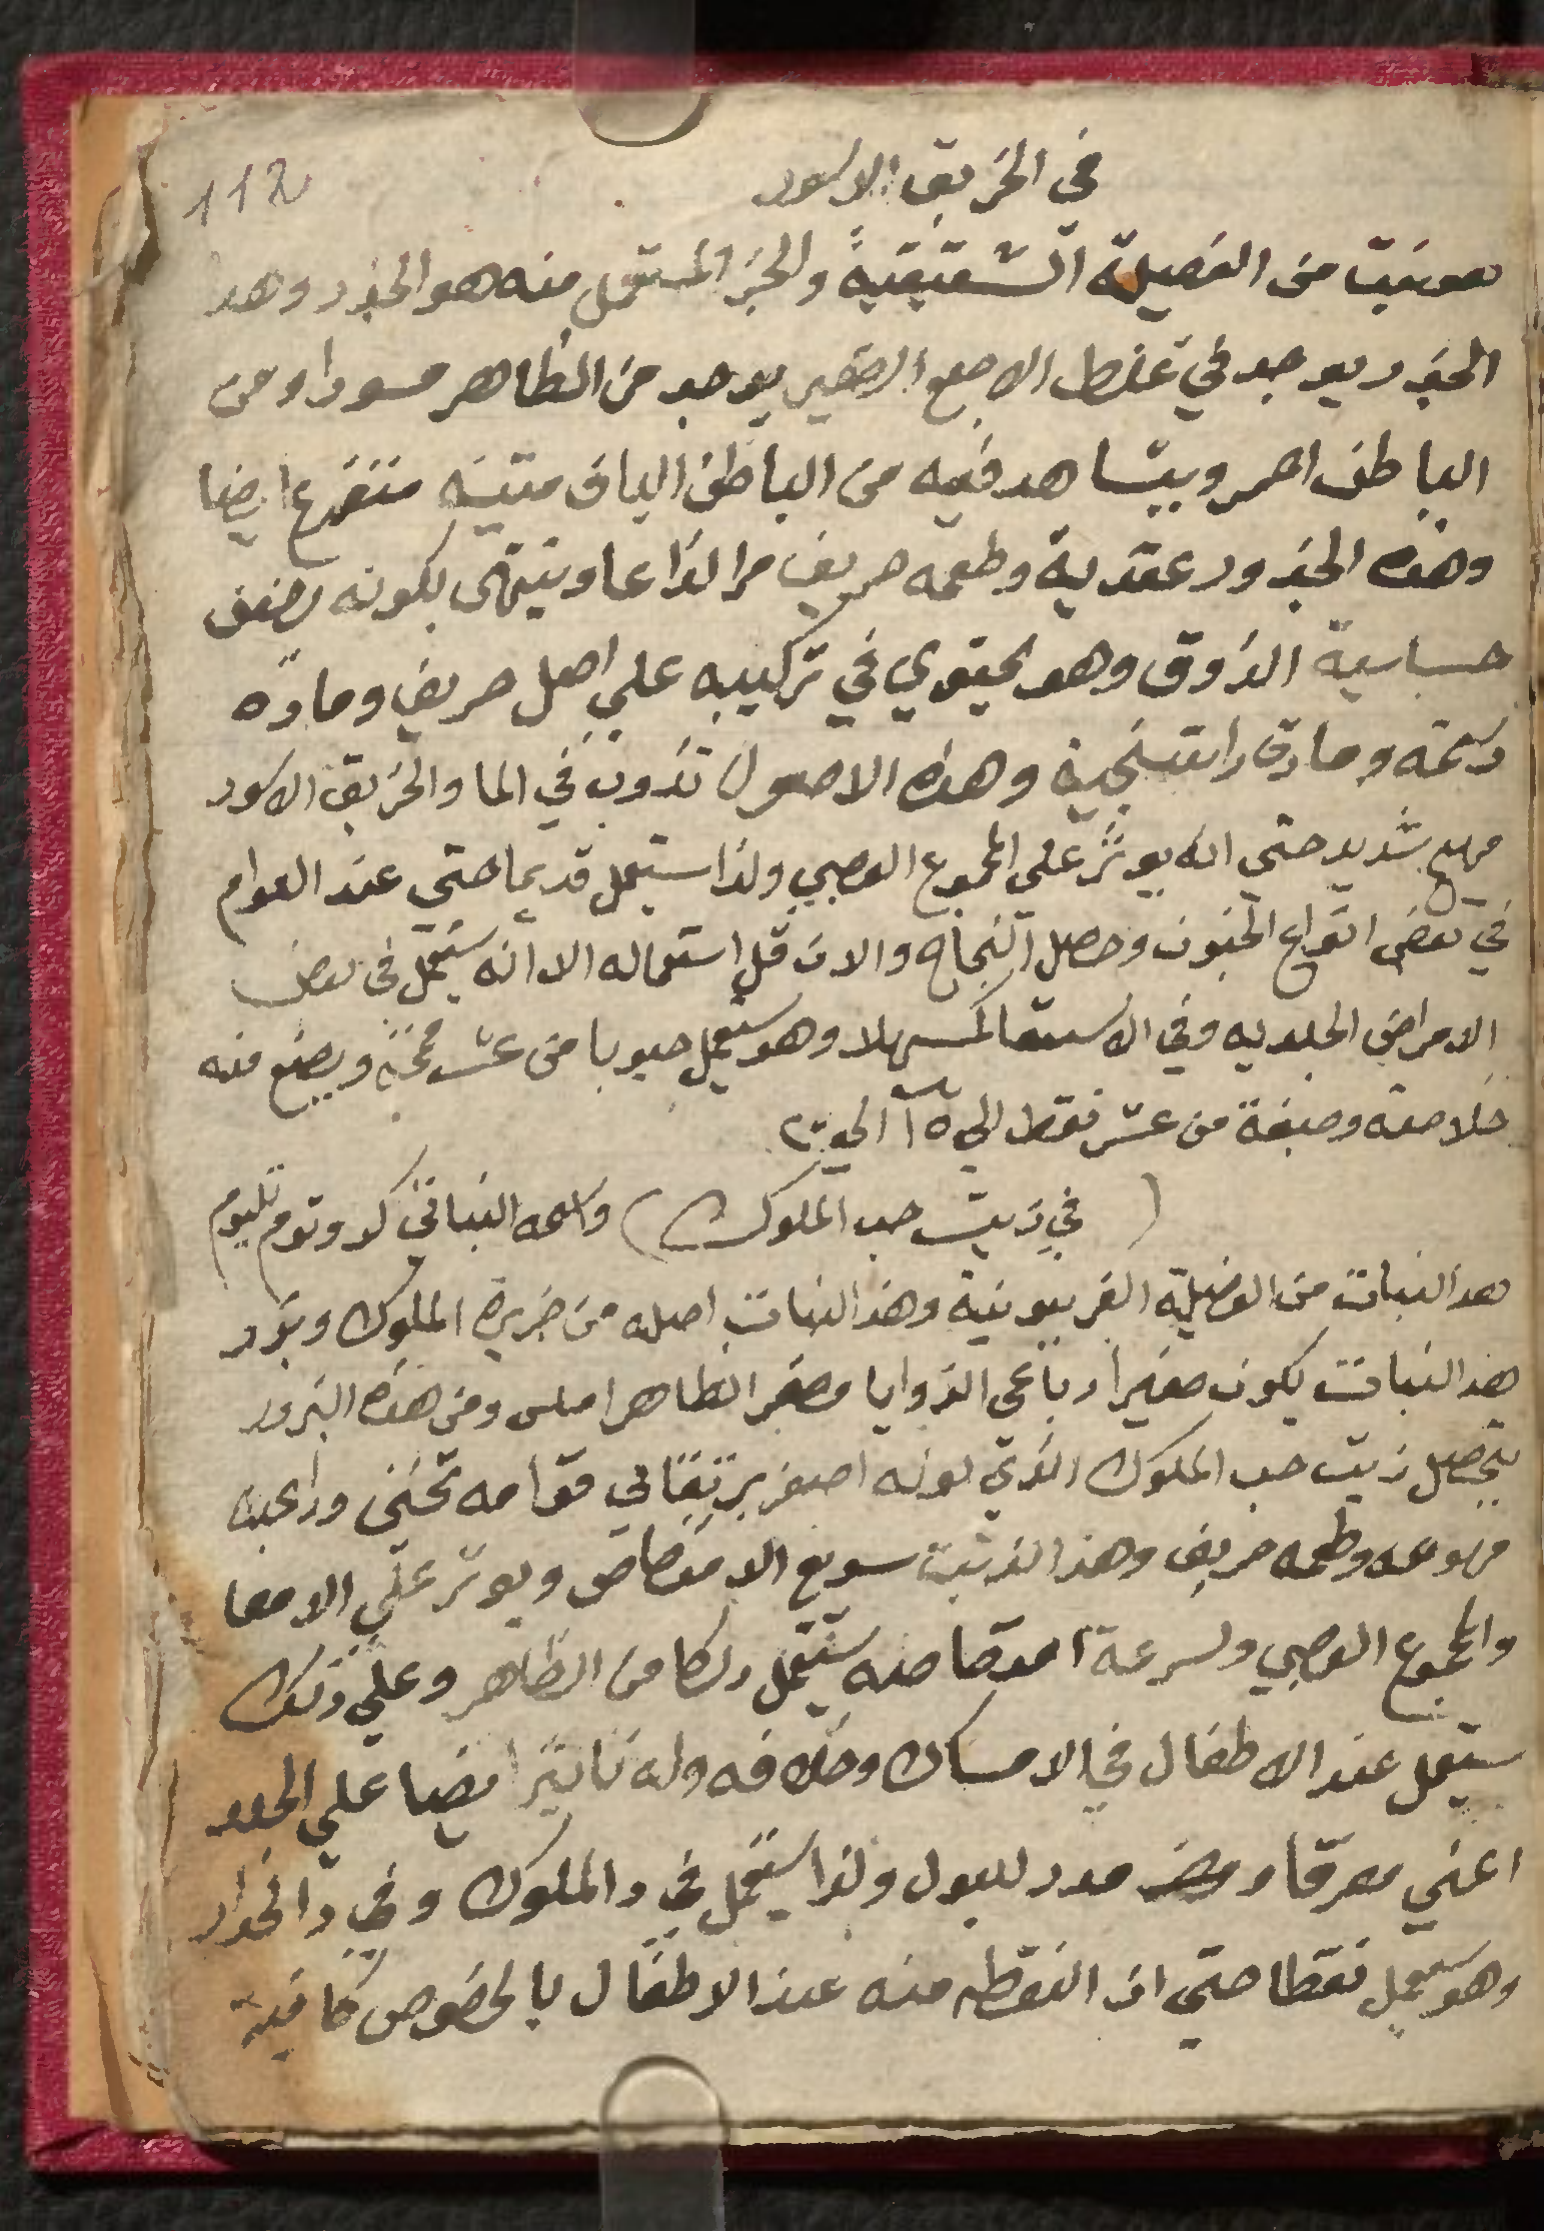 112
في الخربق الاسود
هو نبت من الفصيلة الشقيقية والجز المستعمل منه هو الجذر وهذا
الجذر يوجد في غلظ الاصبع الصغير يوجد من الظاهر مسودا ومن
الباطن احمر ويشاهد فيه من الباطن الياف متينه متفرع ايضا
وهذه الجذور عقدية وطعمه حريف مر لذاعا وينتهى بكونه يضعف
حساسية الذوق وهو يحتوي في تركيبه علي اصل حريف وماده
دسمه ومادة راتنجية وهذه الاصول تذوب في الما والخربق الاسود
مهيج شديد حتي انه يوثر علي المجموع العصبي ولذا ستعمل قديما حتي عند العوام
في بعض انواع الجنون وحصل النجاح والان قل استعماله الا انه يستعمل في بعض
الامراض الجلديه وفي الاستسقا كمسهلا وهو يستعمل حبوبا من عشر قمحه ويصنع منه
خلاصه وصبغة من عشر نقط الي ١٥ الي ٢٠
( في زيت حب الملوك ) واسمه النباتي كروتوم تليوم
هذا النبات من الفصيلة الفربيونية وهذا النبات اصله من جزيرة الملوك وبزر
هذا النبات يكون صغيرا رباعى الزوايا مصفر الظاهر املس ومن هذه البزور
يتحصل زيت حب الملوك الذي لونه اصفر برتقاني قوامه تخنى ورائحته
مهوعه وطعمه حريف وهذا الزيت سريع الامتصاص ويوثر علي الامعا
والمجموع العصبي ولسرعة امتصاصه يستعمل دلكا من الظاهر وعلي ذلك
ستعمل عند الاطفال في الامساك وخلافه وله تاثير ايضا علي الجلد
اعني معرقا و مدر للبول ولذا يستعمل في دا الملوك وفي دا الخدار
وهو يستعمل نقطا حتي ان النقطه منه عند الاطفال بالخصوص كافية